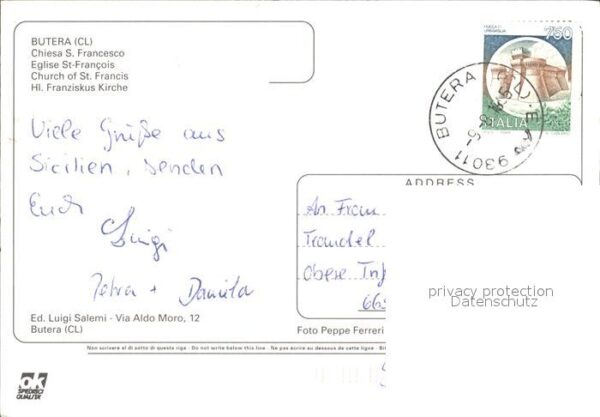 BUTERA (CL)
Chiesa S. Francesco
Eglise St-François
Church of St. Francis
Hl. Franziskus Kirche
750
ITALIA
BUTERA
93011
Viele Grüße aus
Sicilien, senden
Euch
Luigi
Petra + Daniela
ADDRESS
An Fram
Traudel
Obere
privacy protection
Datenschutz
Ed. Luigi Salemi - Via Aldo Moro, 12
Butera (CL)
Foto Peppe Ferreri
Non scrivere al di sotto di questa riga - Do not write below this line - Ne pas écrire au dessous de cette ligne -
ok
SPEDISCI
QUALITÀ